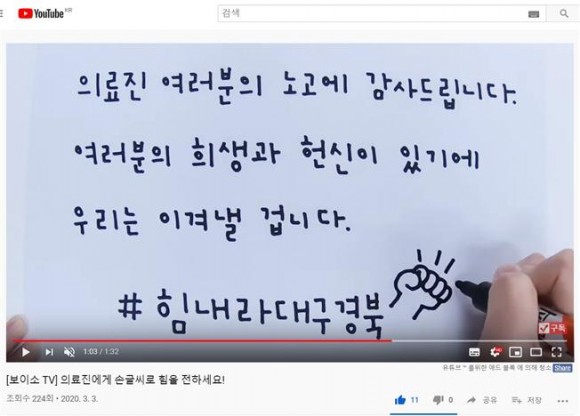 YouTube KR
검색
의료진 여러분의 노고에 감사드립니다.
여러분의 희생과 헌신이 있기에
우리는 이겨낼 겁니다.
#힘내라대구경북
구독
1:03 / 1:32
유튜브™를위한 애드 블록 에 의해 청소 Share
[보이소 TV] 의료진에게 손글씨로 힘을 전하세요!
조회수 224회 • 2020. 3. 3.
11 0 공유 저장